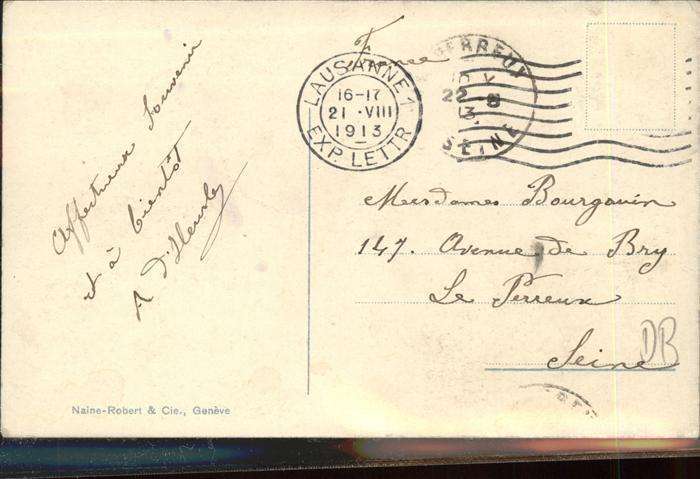 Affectueux Souvenir
et à bientôt
France
LAUSANNE 1
16-17
21 · VIII
1913
EXP. LETTR.
PERREUX
22 - 8
13
SEINE
Mesdames Bourgouin
147. Avenue de Bry
Le Perreux
Seine
DB
Naine-Robert & Cie., Genève